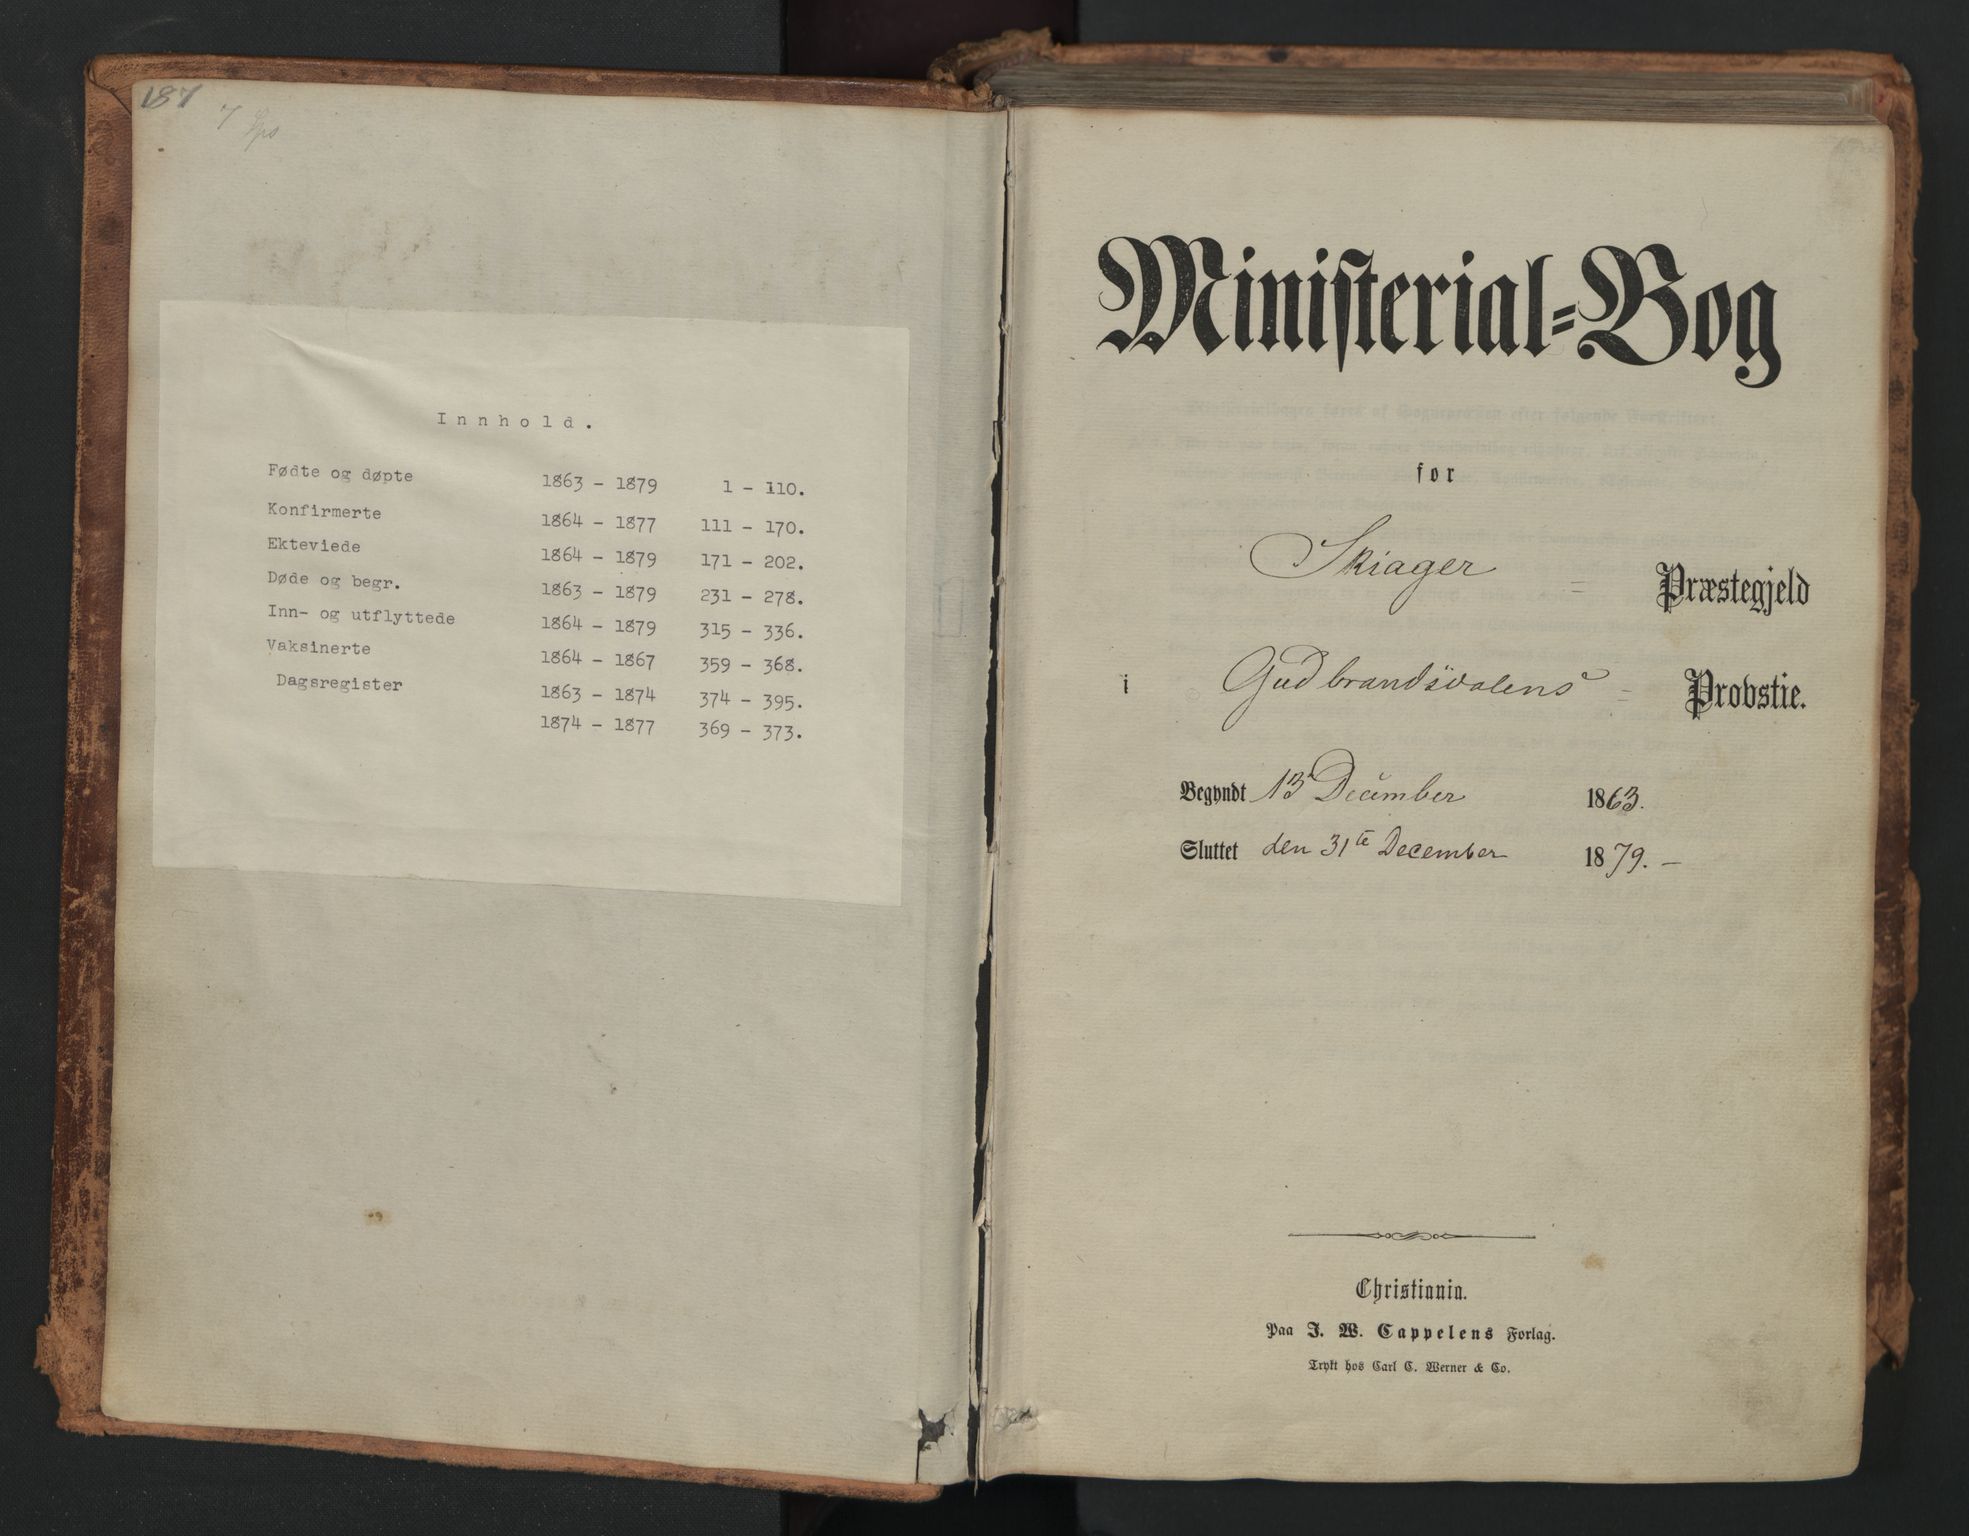 187
7
Innhold.
Fødte og døpte 1863 - 1879 1 - 110.
Konfirmerte 1864 - 1877 111 - 170.
Ekteviede 1864 - 1879 171 - 202.
Døde og begr. 1863 - 1879 231 - 278.
Inn- og utflyttede 1864 - 1879 315 - 336.
Vaksinerte 1864 - 1867 359 - 368.
Dagsregister 1863 - 1874 374 - 395.
1874 - 1877 369 - 373.
Ministerial-Bog
for
Skiager Præstegjeld
i Gudbrandsdalens Provstie.
Begyndt 13 December 1863.
Sluttet den 31te December 1879. -
Christiania.
Paa J. W. Cappelens Forlag.
Trykt hos Carl C. Werner & Co.